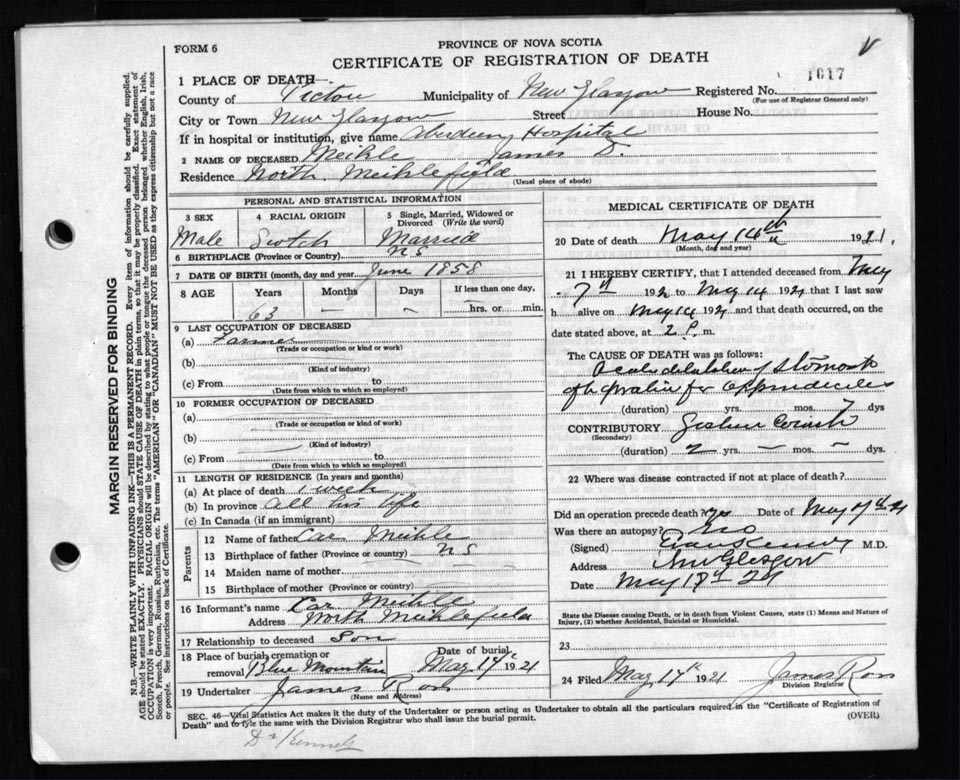 PROVINCE OF NOVA SCOTIA
FORM 6
CERTIFICATE OF REGISTRATION OF DEATH
1617
1 PLACE OF DEATH—
County of Pictou Municipality of New Glasgow Registered No.
(For use of Registrar General only)
City or Town New Glasgow Street House No.
If in hospital or institution, give name Aberdeen Hospital
2 NAME OF DECEASED Meikle James D.
Residence North Meiklefield
(Usual place of abode)
PERSONAL AND STATISTICAL INFORMATION
3 SEX 4 RACIAL ORIGIN 5 Single, Married, Widowed or Divorced (Write the word)
Male Scotch Married
6 BIRTHPLACE (Province or Country) NS
7 DATE OF BIRTH (month, day and year) June 1858
8 AGE Years Months Days If less than one day,
63 — — hrs. or min.
9 LAST OCCUPATION OF DECEASED
(a) Farmer
(Trade or occupation or kind of work)
(b)
(Kind of industry)
(c) From to
(Date from which to which so employed)
10 FORMER OCCUPATION OF DECEASED
(a)
(Trade or occupation or kind of work)
(b)
(Kind of industry)
(c) From to
(Date from which to which so employed)
11 LENGTH OF RESIDENCE (In years and months)
(a) At place of death 1 week
(b) In province all his life
(c) In Canada (if an immigrant)
Parents
12 Name of father Meikle
13 Birthplace of father (Province or country) NS
14 Maiden name of mother
15 Birthplace of mother (Province or country)
16 Informant's name Meikle
Address North Meiklefield
17 Relationship to deceased Son
18 Place of burial, cremation or removal Blue Mountain Date of burial May 17th 1921
19 Undertaker James Ross
(Name and Address)
MEDICAL CERTIFICATE OF DEATH
20 Date of death May 14th 1921.
(Month, day and year)
21 I HEREBY CERTIFY, that I attended deceased from May
7th 192 to May 14 1921 that I last saw
h alive on May 14 1921 and that death occurred, on the
date stated above, at 2 P. m.
The CAUSE OF DEATH was as follows:
Acute dilatation of stomach
operation for appendicitis
(duration) yrs. mos. 7 dys
CONTRIBUTORY
(Secondary)
(duration) 2 — —
22 Where was disease contracted if not at place of death?
Did an operation precede death? Yes Date of May
Was there an autopsy? No
(Signed) M.D.
Address New Glasgow
Date May
State the Disease causing Death, or in death from Violent Causes, state (1) Means and Nature of
Injury, (2) whether Accidental, Suicidal or Homicidal.
23
24 Filed May 17th 1921 James Ross
Division Registrar
SEC. 46—Vital Statistics Act makes it the duty of the Undertaker or person acting as Undertaker to obtain all the particulars required in the "Certificate of Registration of
Death" and to fyle the same with the Division Registrar who shall issue the burial permit.
(OVER)
MARGIN RESERVED FOR BINDING
N.B.—WRITE PLAINLY WITH UNFADING INK—THIS IS A PERMANENT RECORD. Every item of information should be carefully supplied.
AGE should be stated EXACTLY. PHYSICIANS should STATE CAUSE OF DEATH in plain terms, so that it may be properly classified. Exact statement of
OCCUPATION is very important. RACIAL ORIGIN will be described by stating to what people or tongue the deceased person belonged whether English, Irish,
Scotch, French, German, Russian, Ruthenian, etc. The terms "AMERICAN" OR "CANADIAN" MUST NOT BE USED as they express citizenship but not a race
or people. See instructions on back of Certificate.